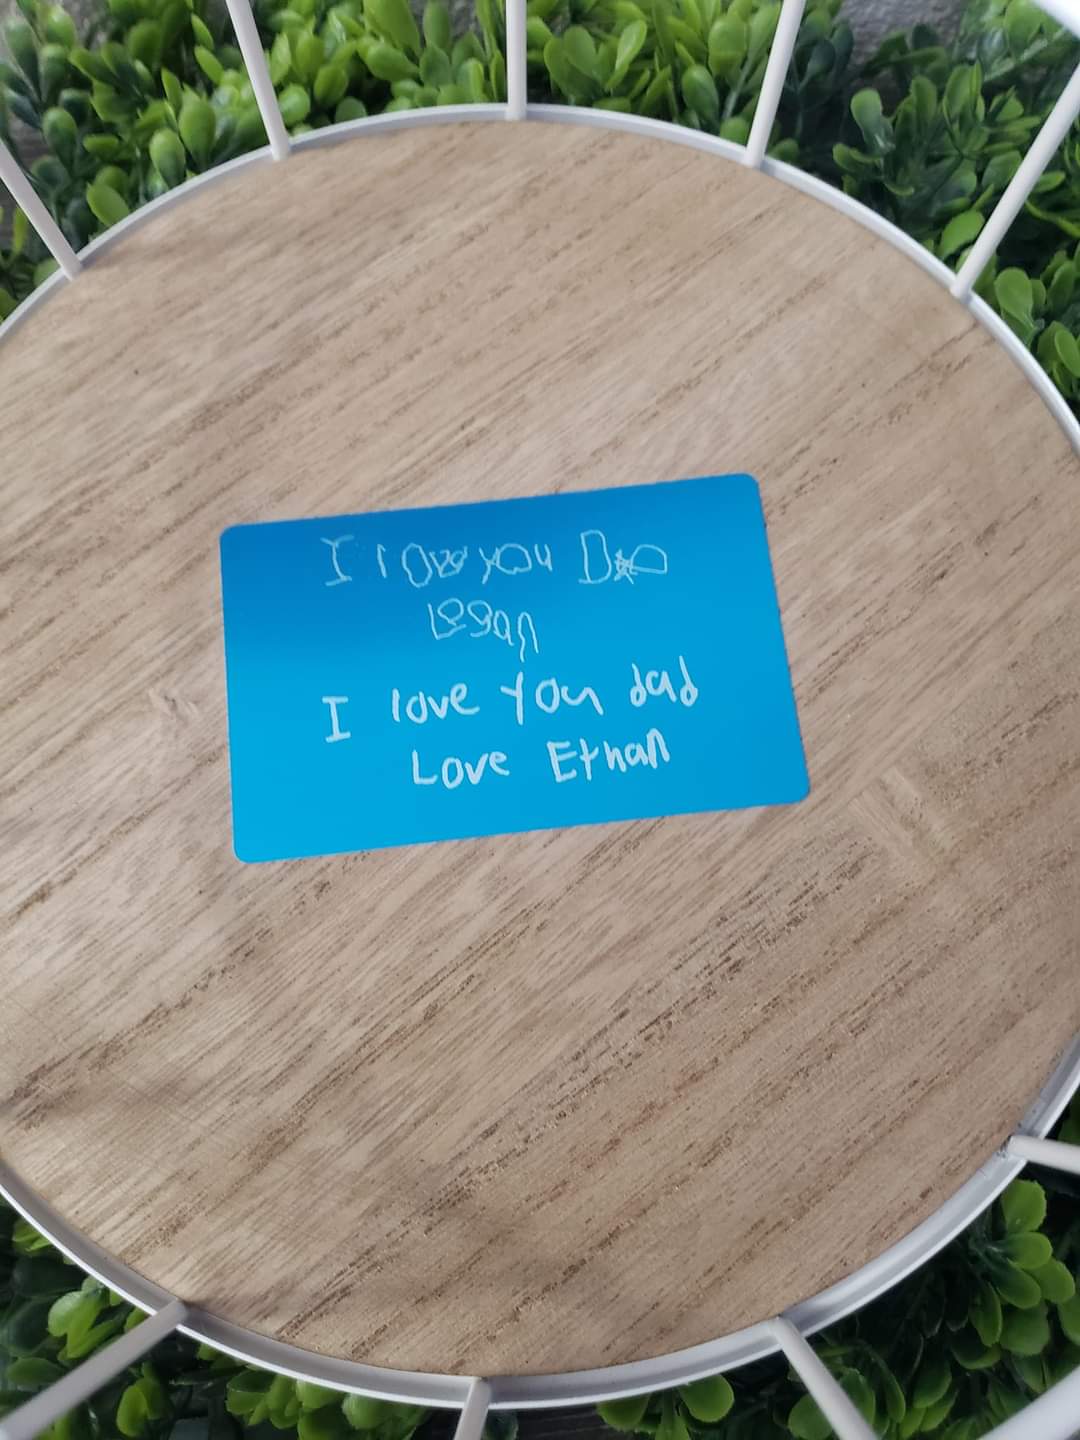 I love you Dad
Logan
I love you dad
Love Ethan